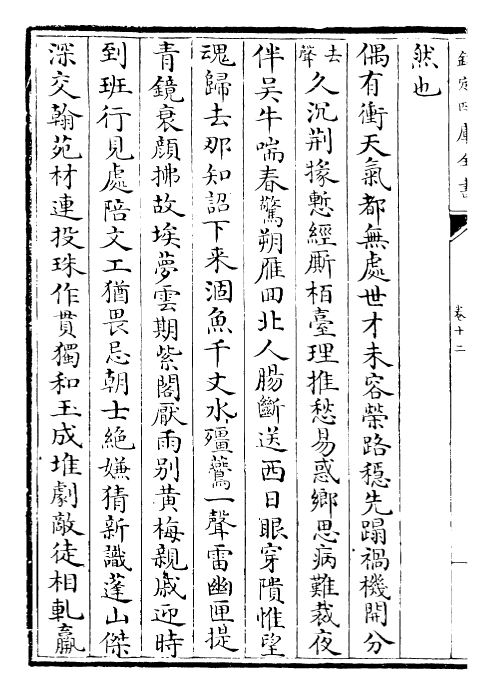 欽定四庫全書
卷十二
然也
偶有衝天氣都無處世才未容榮路穩先蹋禍機開分
去聲久沉荆掾慙經厮栢臺理推愁易惑鄉思病難裁夜
伴吴牛喘春驚朔雁囬北人腸斷送西日眼穿隤惟望
魂歸去那知詔下来涸魚千丈水殭鷰一聲雷幽匣提
青鏡衰顔拂故埃夢雲期紫閣厭雨别黄梅親戚迎時
到班行見處陪文工猶畏忌朝士絶嫌猜新識蓬山傑
深交翰苑材連投珠作貫獨和玉成堆劇敵徒相軋羸